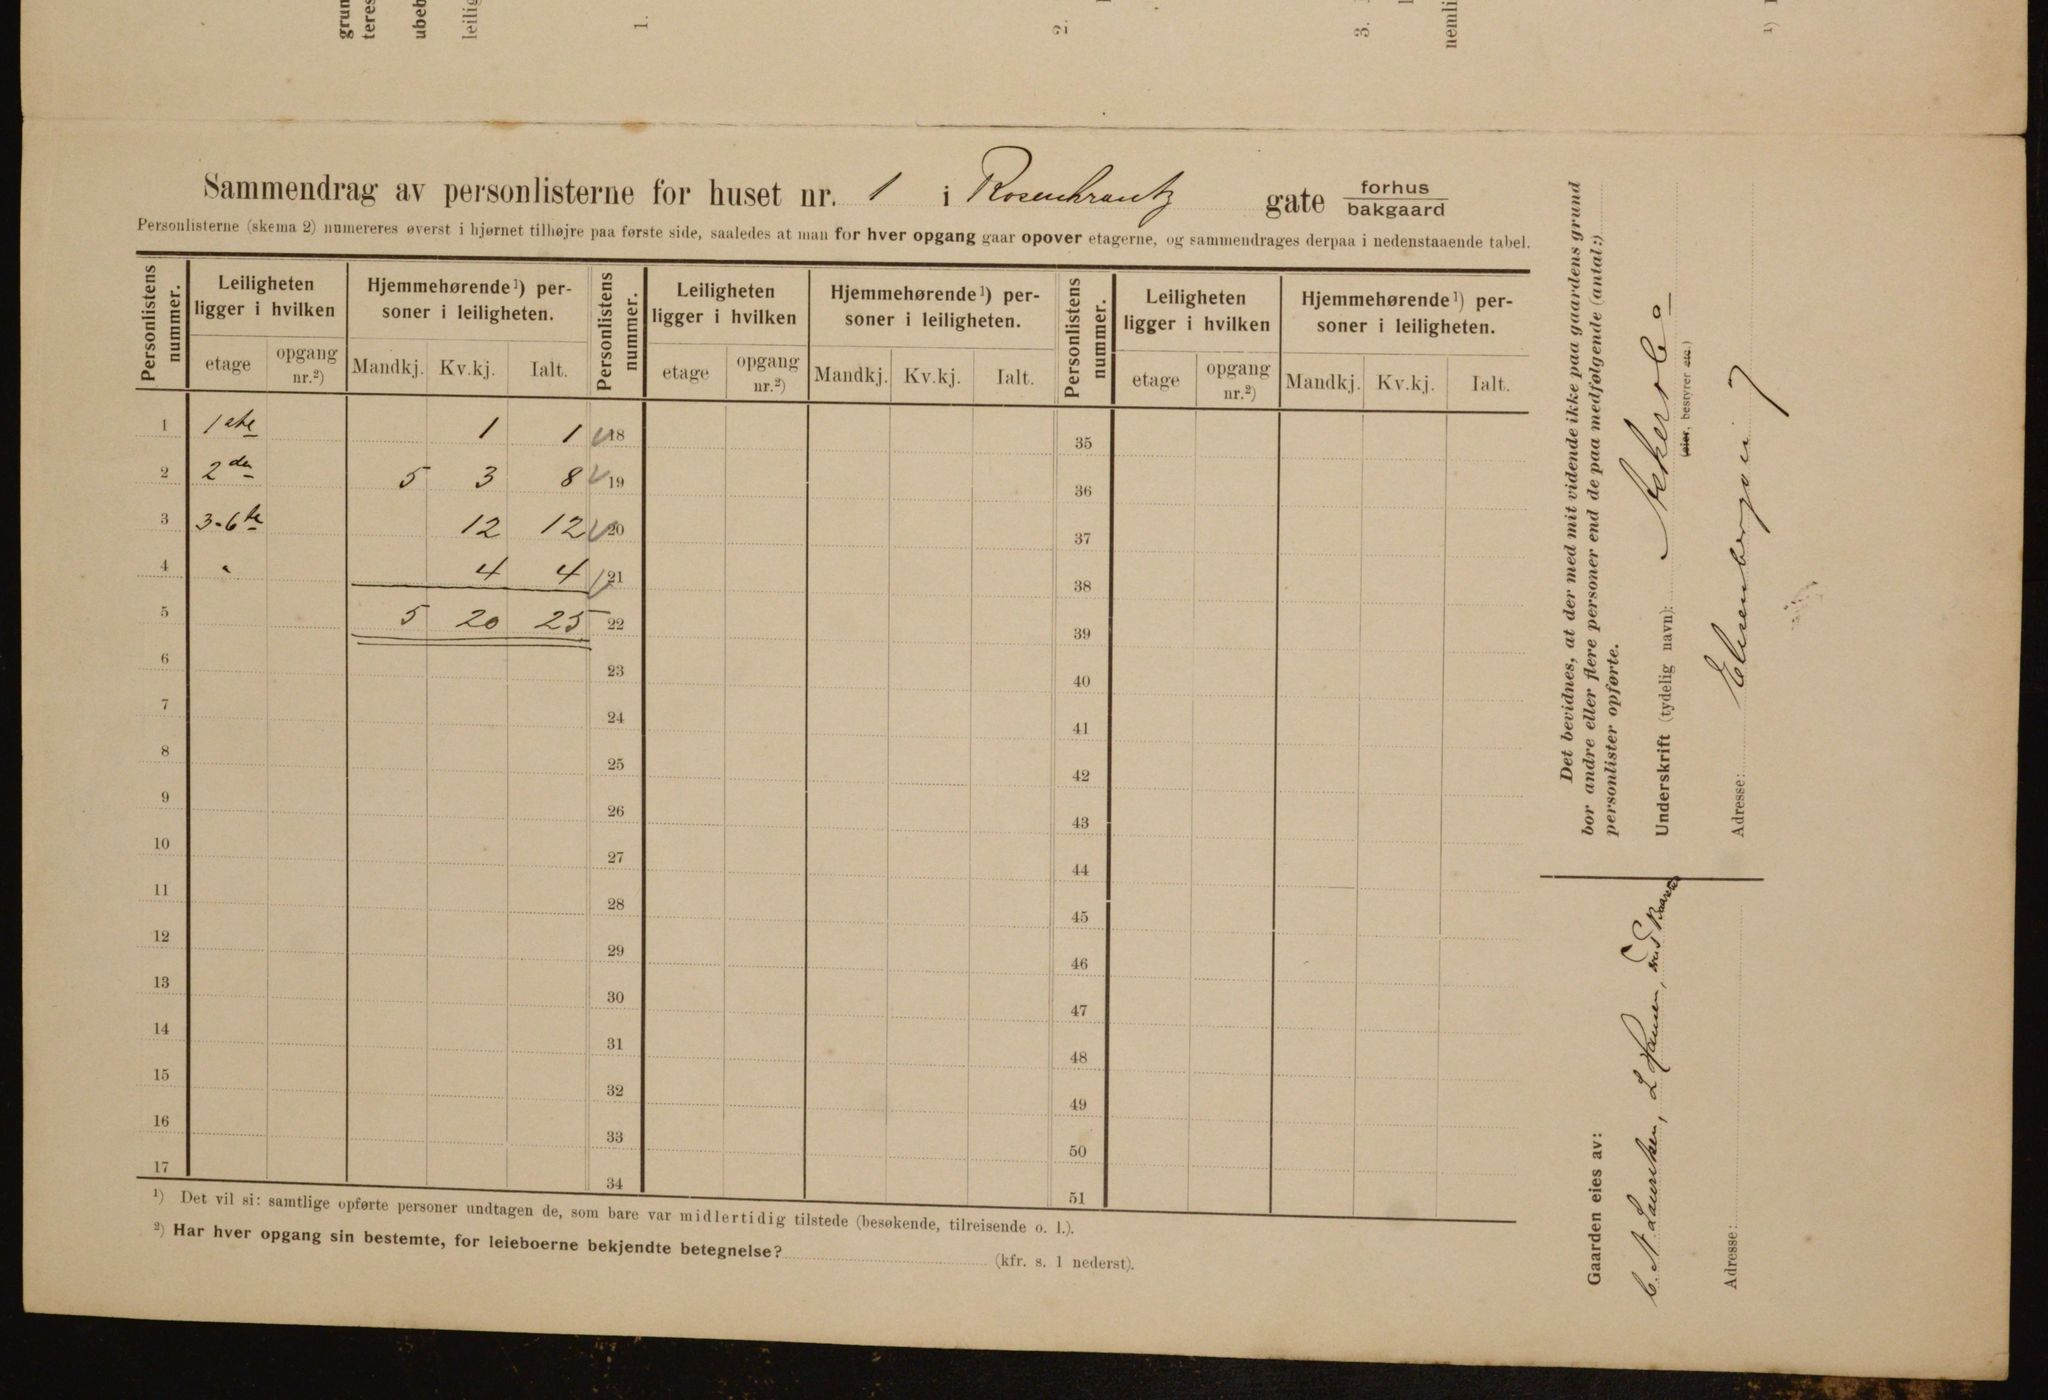 grun
teres
ubeb
leilig
1.
2.
3.
nemli
¹)
Sammendrag av personlisterne for huset nr. 1 i Rosenkrantz gate forhus
bakgaard
Personlisterne (skema 2) numereres øverst i hjørnet tilhøjre paa første side, saaledes at man for hver opgang gaar opover etagerne, og sammendrages derpaa i nedenstaaende tabel.
Personlistens nummer. Leiligheten ligger i hvilken Hjemmehørende¹) personer i leiligheten. Personlistens nummer. Leiligheten ligger i hvilken Hjemmehørende¹) personer i leiligheten. Personlistens nummer. Leiligheten ligger i hvilken Hjemmehørende¹) personer i leiligheten.
etage opgang nr.²) Mandkj. Kv.kj. Ialt. etage opgang nr.²) Mandkj. Kv.kj. Ialt. etage opgang nr.²) Mandkj. Kv.kj. Ialt.
1 1ste 1 1 18 35
2 2den 5 3 8 19 36
3 3-6te 12 12 20 37
4 " 4 4 21 38
5 5 20 25 22 39
6 23 40
7 24 41
8 25 42
9 26 43
10 27 44
11 28 45
12 29 46
13 30 47
14 31 48
15 32 49
16 33 50
17 34 51
¹) Det vil si: samtlige opførte personer undtagen de, som bare var midlertidig tilstede (besøkende, tilreisende o. l.).
²) Har hver opgang sin bestemte, for leieboerne bekjendte betegnelse? (kfr. s. 1 nederst).
Det bevidnes, at der med mit vidende ikke paa gaardens grund
bor andre eller flere personer end de paa medfølgende (antal:)
personlister opførte.
Underskrift (tydelig navn):
(eier, bestyrer etc.)
Adresse: 7
Gaarden eies av:
L Hansen,
Adresse: